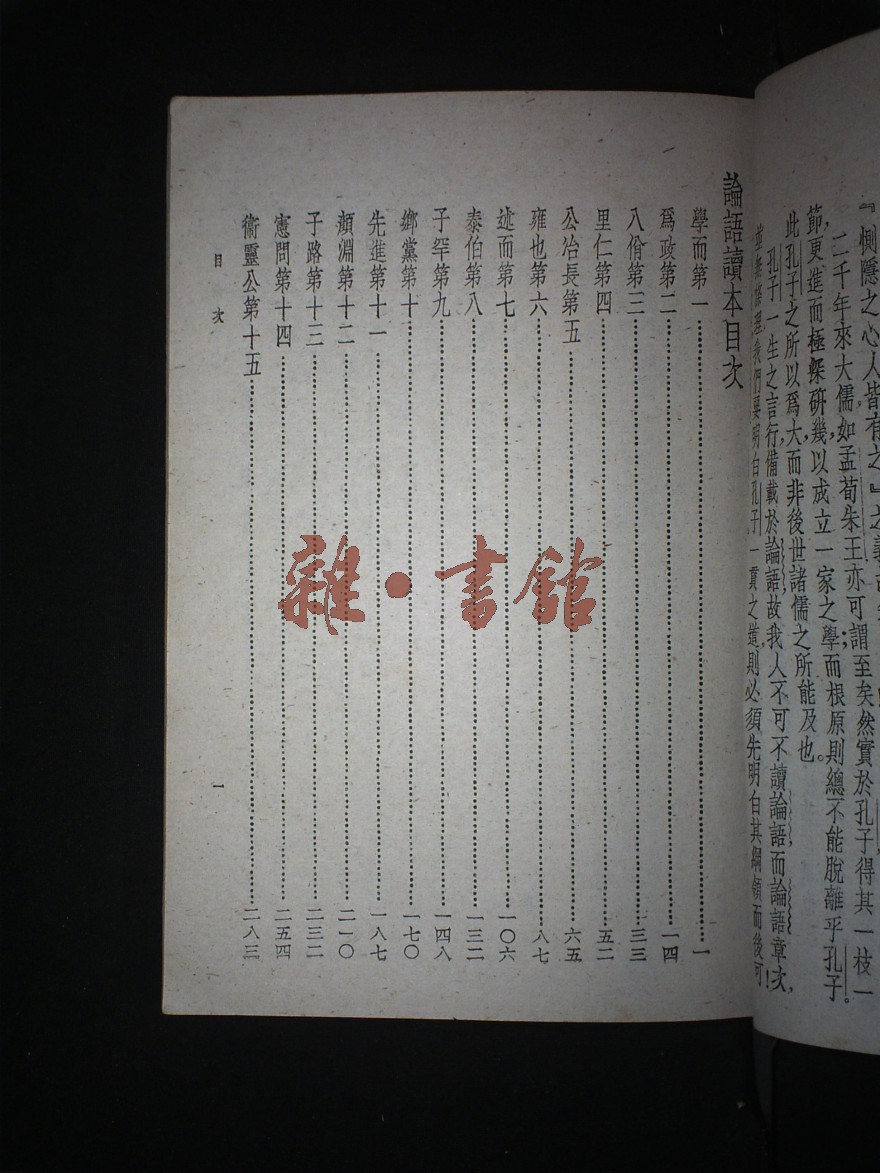 『惻隱之心人皆有之』之義
二千年來大儒如孟荀朱王亦可謂至矣然實於孔子得其一枝一
節,更進而極深研幾以成立一家之學而根原則總不能脫離乎孔子。
此孔子之所以爲大而非後世諸儒之所能及也。
孔子一生之言行備載於論語故我人不可不讀論語而論語章次,
我們要明白孔子一貫之道,則必須先明白其綱領而後可!
論語讀本目次
學而第一……一
爲政第二……一四
八佾第三……三三
里仁第四……五二
公冶長第五……六五
雍也第六……八七
述而第七……一〇六
泰伯第八……一三二
子罕第九……一四八
鄉黨第十……一七〇
先進第十一……一八七
顏淵第十二……二一〇
子路第十三……二三二
憲問第十四……二五四
衞靈公第十五……二八三
目次 一
雜·書館